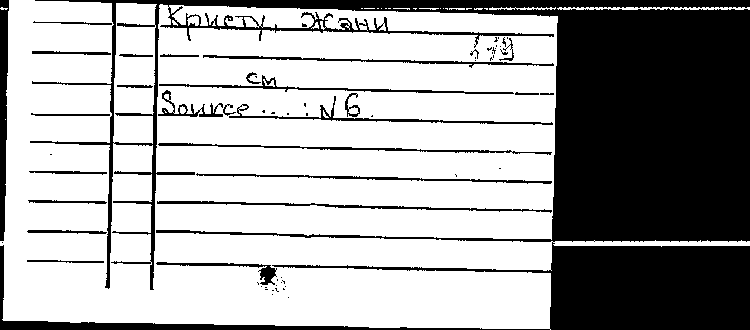 Кристу, Жани
см.
Source ... : N 6.